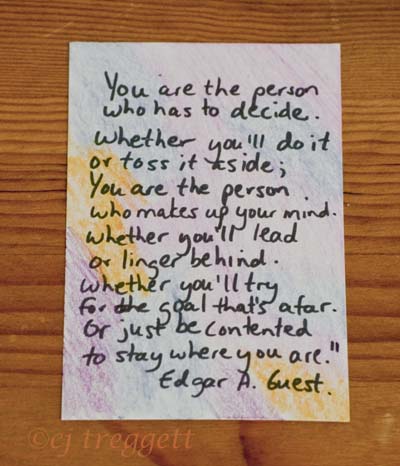 You are the person
who has to decide.
Whether you'll do it
or toss it aside;
You are the person
who makes up your mind.
Whether you'll lead
or linger behind.
Whether you'll try
for the goal that's afar.
Or just be contented
to stay where you are."
Edgar A. Guest.
©cj treggett